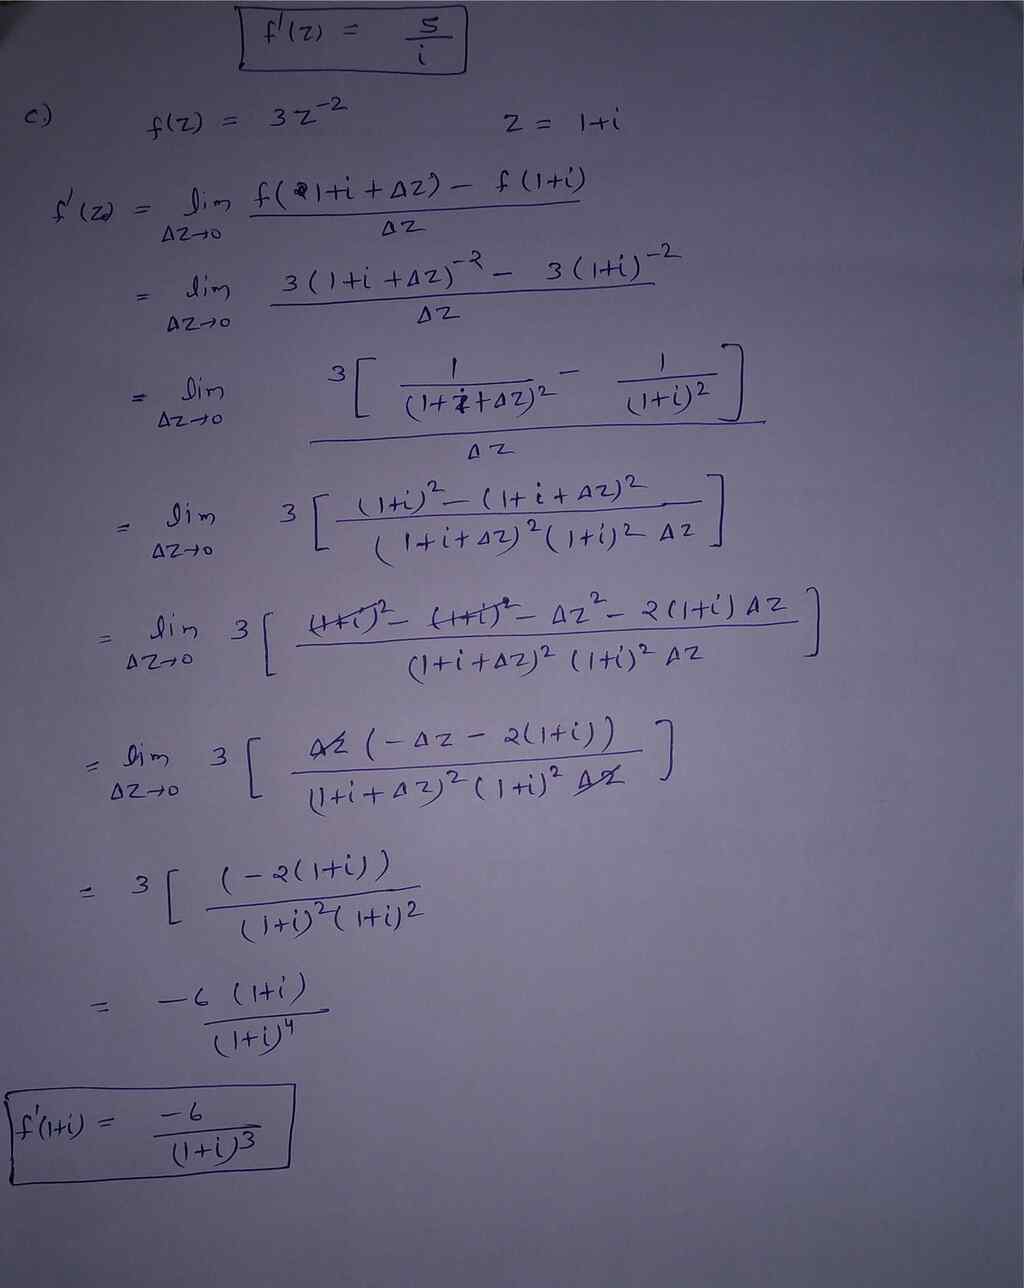 f'(z) = 5/i
c) f(z) = 3z^-2 z = 1+i
f'(z) = lim Δz→0 (f(1+i+Δz) - f(1+i))/Δz
= lim Δz→0 (3(1+i+Δz)^-2 - 3(1+i)^-2)/Δz
= lim Δz→0 3[1/(1+i+Δz)^2 - 1/(1+i)^2]/Δz
= lim Δz→0 3[((1+i)^2 - (1+i+Δz)^2)/((1+i+Δz)^2 (1+i)^2 Δz)]
= lim Δz→0 3[((1+i)^2 - (1+i)^2 - Δz^2 - 2(1+i)Δz)/((1+i+Δz)^2 (1+i)^2 Δz)]
= lim Δz→0 3[Δz(-Δz - 2(1+i))/((1+i+Δz)^2 (1+i)^2 Δz)]
= 3[(-2(1+i))/((1+i)^2 (1+i)^2)
= -6(1+i)/(1+i)^4
f'(1+i) = -6/(1+i)^3